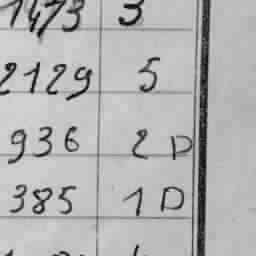 1473 3
2129 5
936 2 D
385 1 D